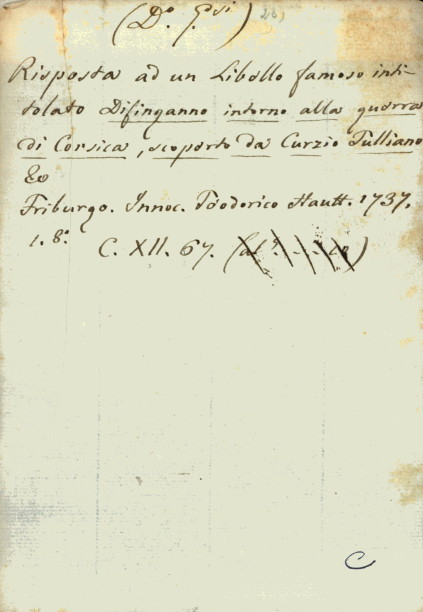 (Dº. Gsi) 28)
Risposta ad un Libello famoso inti-
tolato Disinganno intorno alla guerra
di Corsica, scoperto da Curzio Tulliano
&c
Friburgo. Innoc. Teodorico Hautt. 1737.
1. 8º.
C. XII. 67.
C